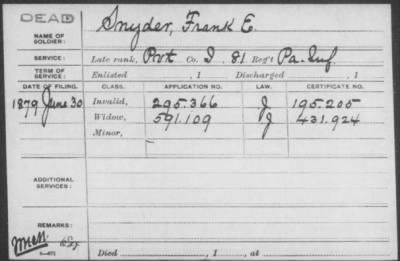 DEAD
NAME OF SOLDIER: Snyder, Frank E.
SERVICE: Late rank, Pvt Co. I, 81 Reg't Pa. Inf.
TERM OF SERVICE: Enlisted , 1 Discharged , 1
DATE OF FILING. CLASS. APPLICATION NO. LAW. CERTIFICATE NO.
1879 June 30 Invalid, 295.366 J 195.205
Widow, 591.109 J 431.924
Minor,
ADDITIONAL SERVICES:
REMARKS:
Died , 1 , at